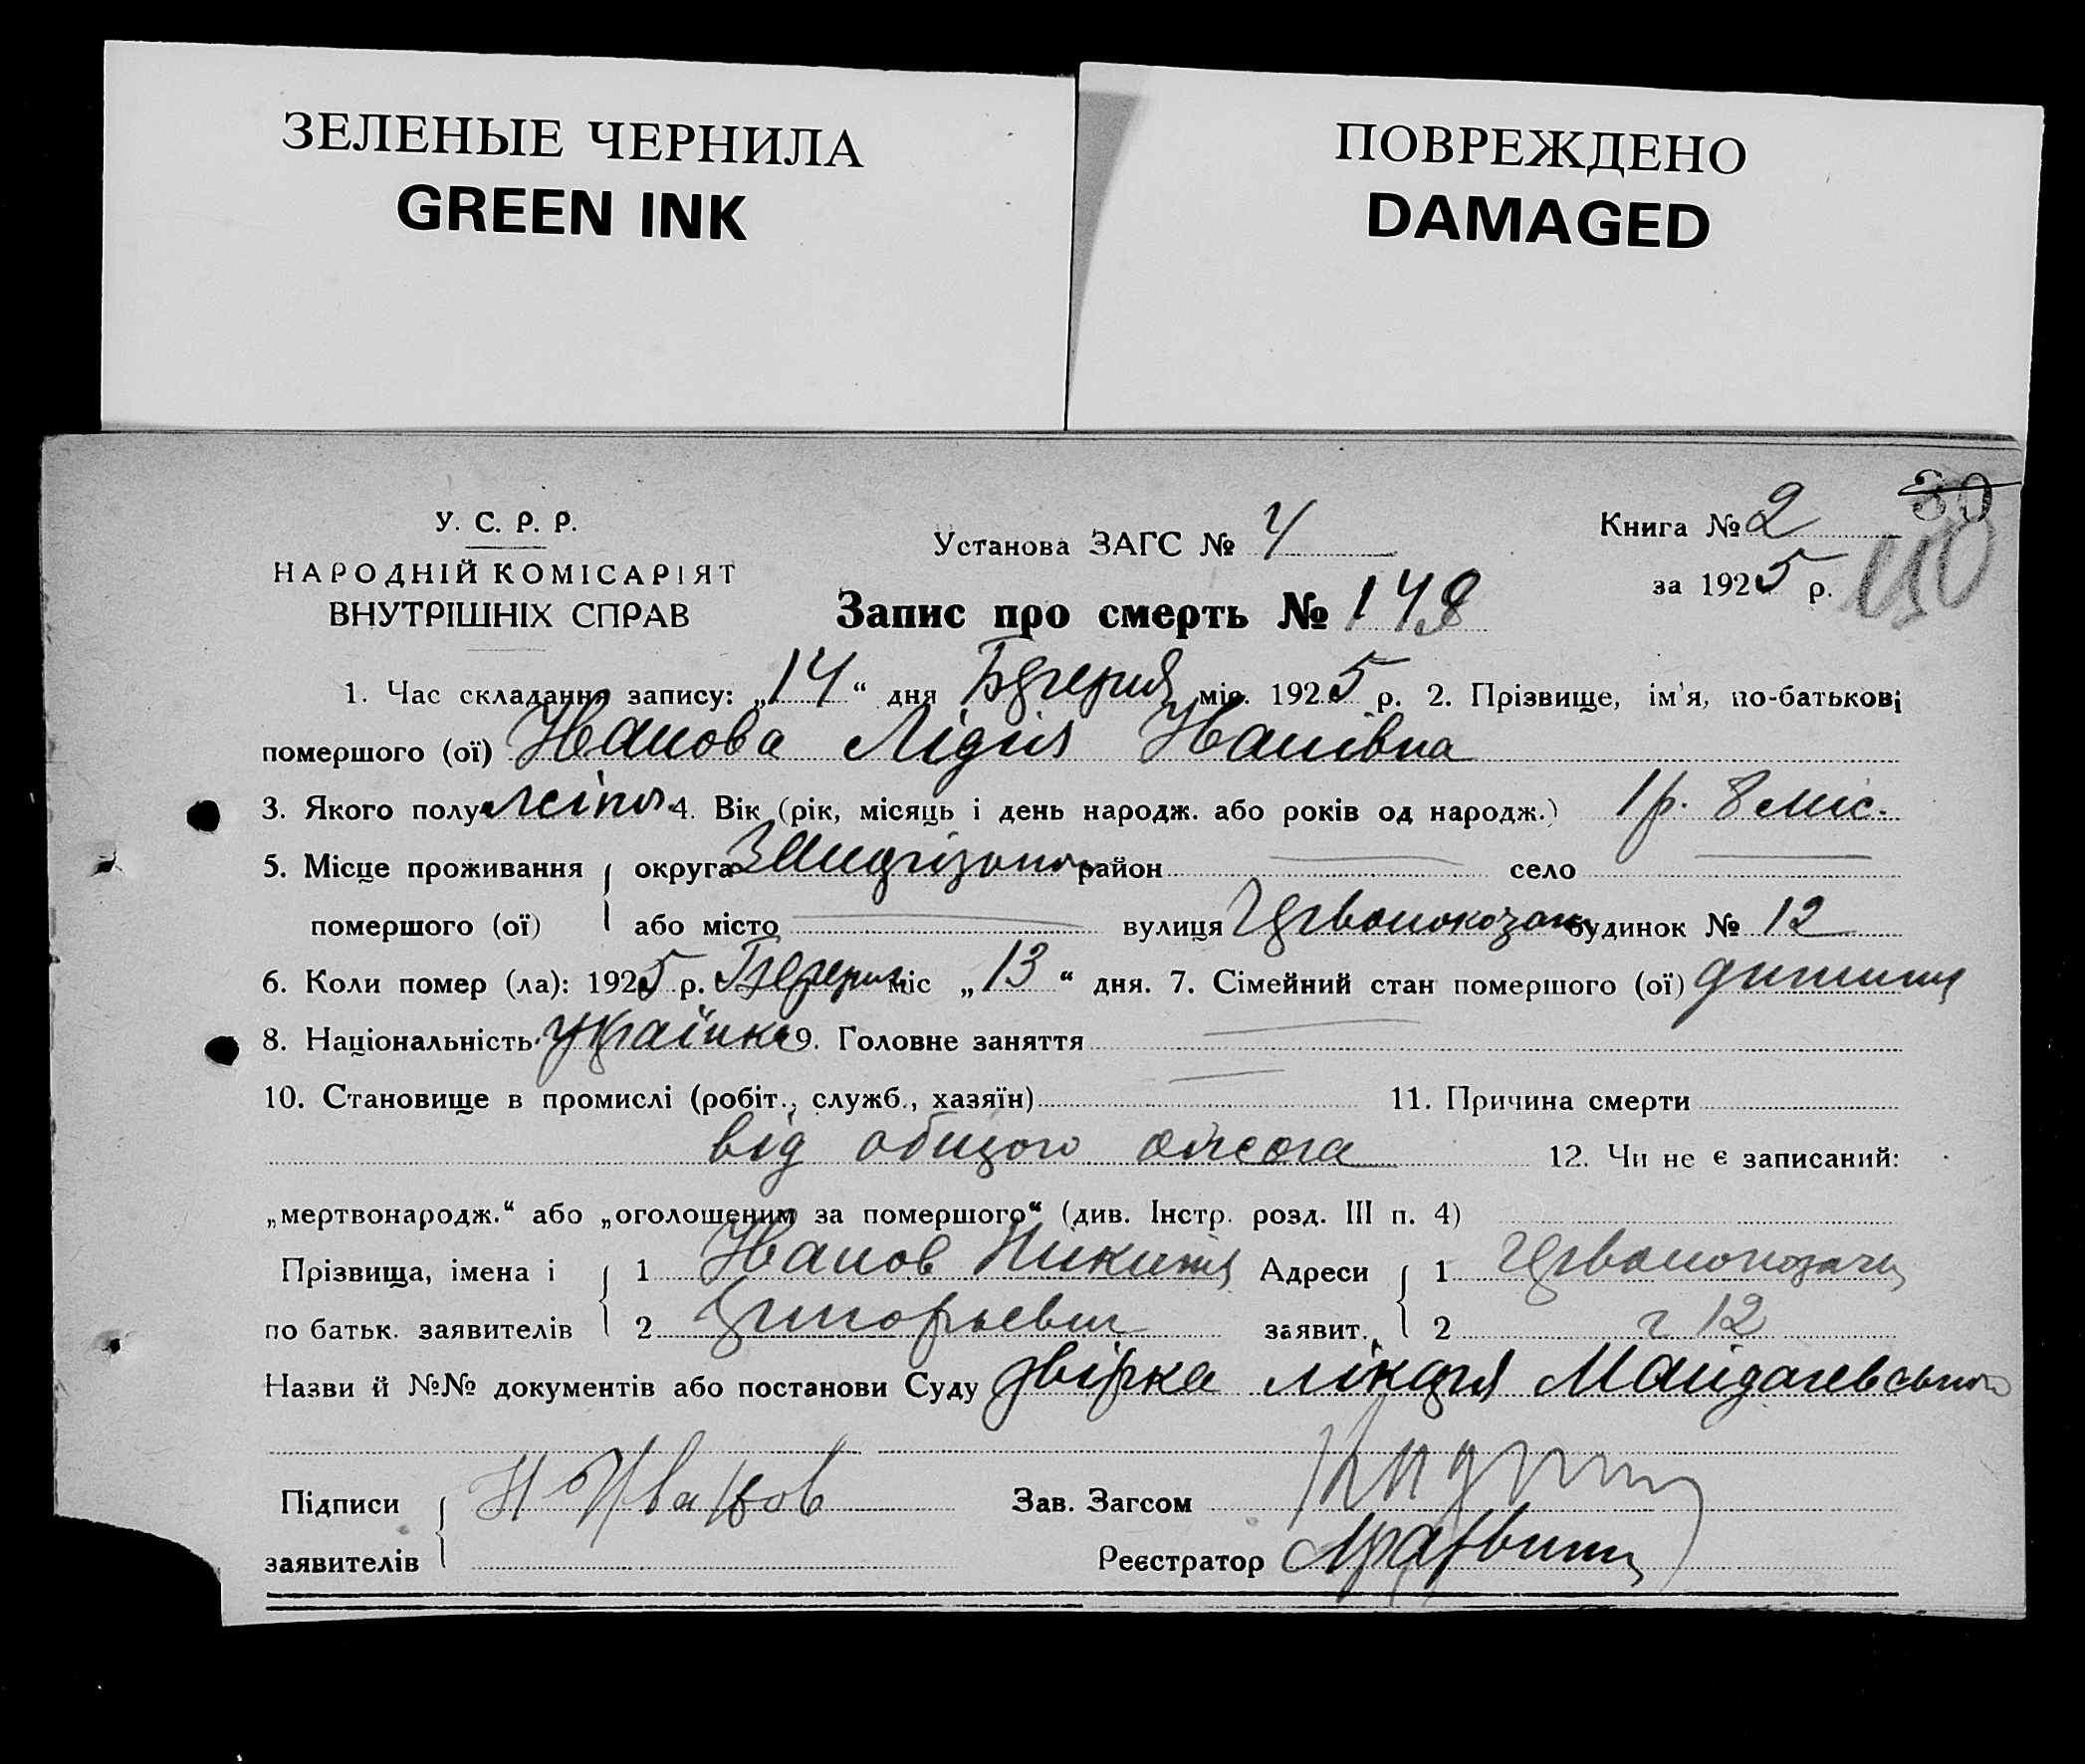 ЗЕЛЕНЫЕ ЧЕРНИЛА
GREEN INK
ПОВРЕЖДЕНО
DAMAGED
30
У. С. Р. Р.
НАРОДНІЙ КОМІСАРІЯТ
ВНУТРІШНІХ СПРАВ
Установа ЗАГС № 4
Книга № 2
за 1925 р.
Запис про смерть №
1. Час складання запису: „14“ дня міс. 1925 р. 2. Прізвище, ім'я, по-батькові
помершого (ої) Иванова Лідія Иванівна
3. Якого полу 4. Вік (рік, місяць і день народж. або років од народж.) 1 р. 8 міс.
5. Місце проживання округа район село
помершого (ої) або місто вулиця будинок № 12
6. Коли помер (ла): 1925 р. міс „13“ дня. 7. Сімейний стан помершого (ої) дитина
8. Національність українка 9. Головне заняття
10. Становище в промислі (робіт., служб., хазяїн) 11. Причина смерти
від общого 12. Чи не є записаний:
„мертвонародж.“ або „оголошеним за помершого“ (див. Інстр. розд. III п. 4)
Прізвища, імена і 1 Иванов Никита Адреси 1
по батьк. заявителів 2 Григорьевич заявит. 2 12
Назви й №№ документів або постанови Суду лікаря
Підписи Н Иванов Зав. Загсом
заявителів Реєстратор